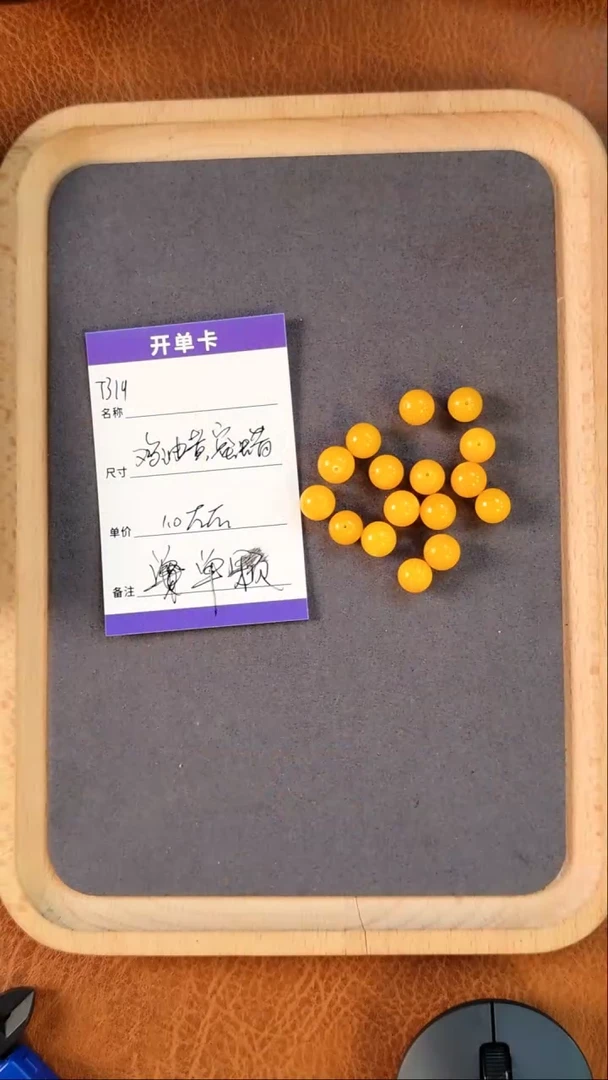 开单卡
T314
名称
鸡油黄,蜜蜡
尺寸
1.0左右
单价
单颗
备注